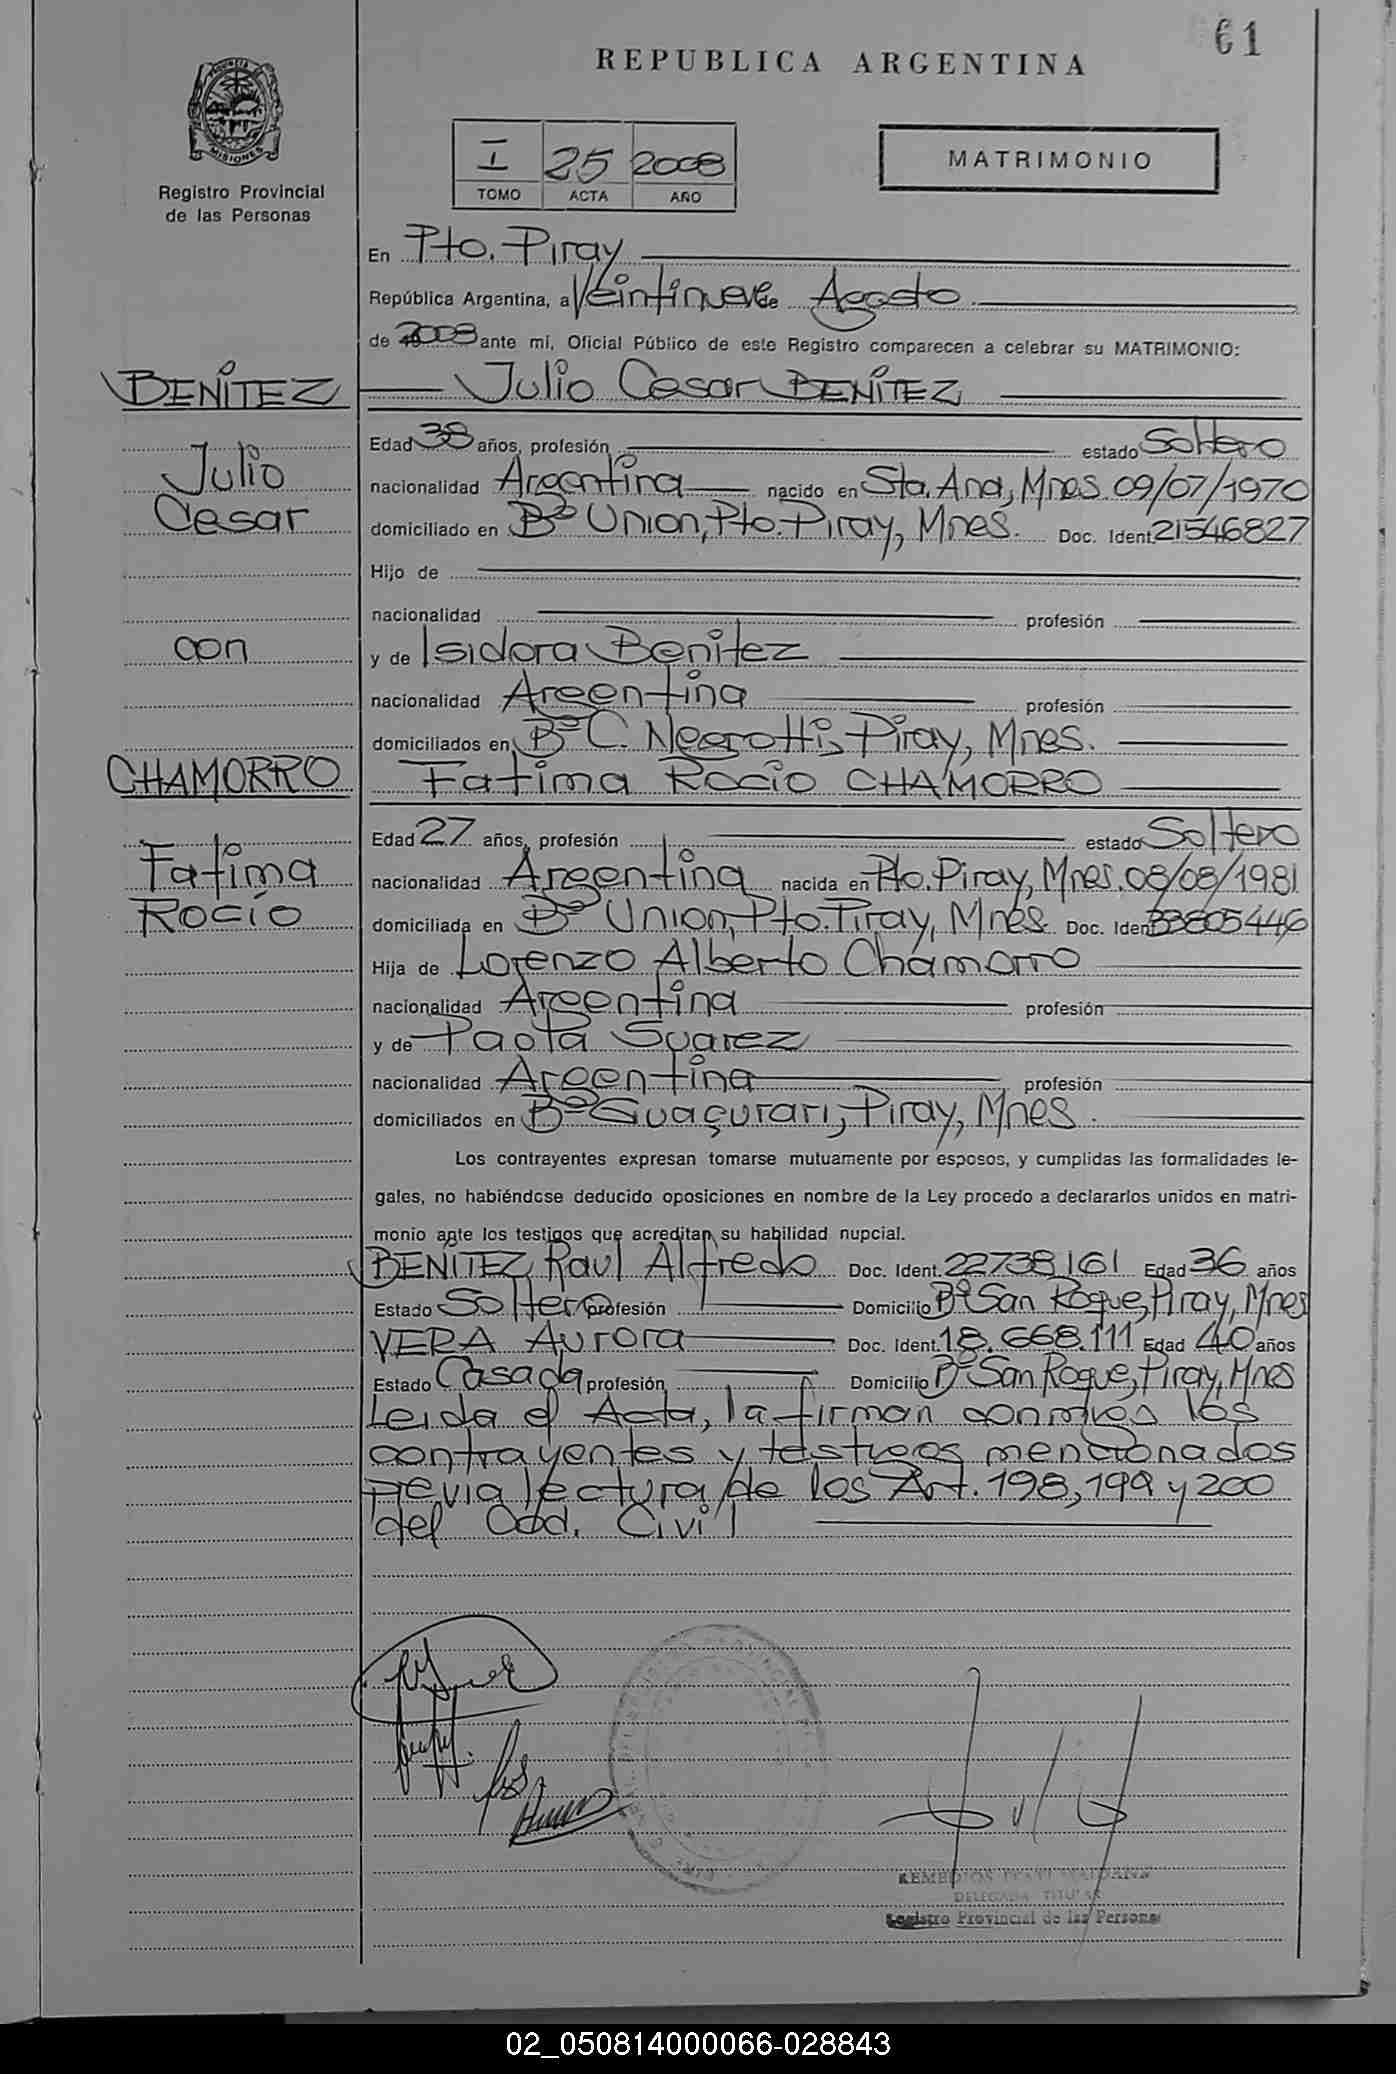 61
REPUBLICA ARGENTINA
PROVINCIA DE
MISIONES
Registro Provincial
de las Personas
I 25 2008
TOMO ACTA AÑO
MATRIMONIO
En Pto. Piray
República Argentina, a Veintinueve de Agosto
de 2008 ante mí, Oficial Público de este Registro comparecen a celebrar su MATRIMONIO:
BENITEZ Julio Cesar BENITEZ
Edad 38 años, profesión estado Soltero
Julio nacionalidad Argentina nacido en Sta. Ana, Mnes. 09/07/1970
Cesar domiciliado en Bº Union, Pto. Piray, Mnes. Doc. Ident. 21546827
Hijo de
nacionalidad profesión
con y de Isidora Benitez
nacionalidad Argentina profesión
domiciliados en Bº C. Negrotti, Piray, Mnes.
CHAMORRO Fatima Rocio CHAMORRO
Edad 27 años, profesión estado Soltero
Fatima nacionalidad Argentina nacida en Pto. Piray, Mnes. 08/08/1981
Rocío domiciliada en Bº Union, Pto. Piray, Mnes. Doc. Ident. 33805446
Hija de Lorenzo Alberto Chamorro
nacionalidad Argentina profesión
y de Paola Suarez
nacionalidad Argentina profesión
domiciliados en Bº Guaçurari, Piray, Mnes.
Los contrayentes expresan tomarse mutuamente por esposos, y cumplidas las formalidades le-
gales, no habiéndose deducido oposiciones en nombre de la Ley procedo a declararlos unidos en matri-
monio ante los testigos que acreditan su habilidad nupcial.
BENITEZ, Raul Alfredo Doc. Ident. 22738161 Edad 36 años
Estado Soltero profesión Domicilio Bº San Roque, Piray, Mnes
VERA Aurora Doc. Ident. 18.668.111 Edad 40 años
Estado Casada profesión Domicilio Bº San Roque, Piray, Mnes
Leida el Acta, la firman conmigo los
contrayentes y testigos mencionados
previa lectura de los Art. 198, 199 y 200
del Cod. Civil
REMEDIOS
DELEGADA TITULAR
Registro Provincial de las Personas
02_050814000066-028843